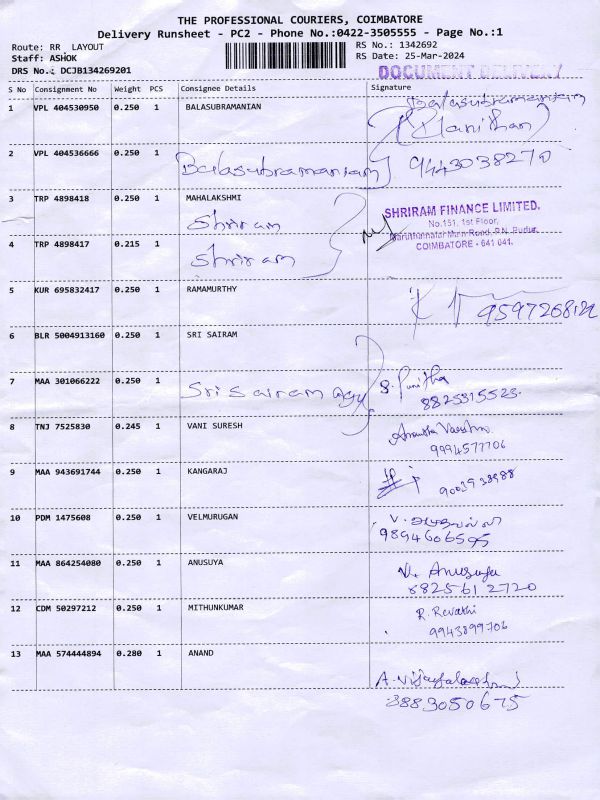 THE PROFESSIONAL COURIERS, COIMBATORE
Delivery Runsheet - PC2 - Phone No.:0422-3505555 - Page No.:1
Route: RR LAYOUT
Staff: ASHOK
DRS No.: DCJB134269201
RS No.: 1342692
RS Date: 25-Mar-2024
DOCUMENT DELIVERY
S No Consignment No Weight PCS Consignee Details Signature
1 VPL 404530950 0.250 1 BALASUBRAMANIAN Balasubramaniam
2 VPL 404536666 0.250 1 Balasubramaniam 9443038270
3 TRP 4898418 0.250 1 MAHALAKSHMI
Shriram
SHRIRAM FINANCE LIMITED.
No.151, 1st Floor,
Maruthamalai Main Road, P.N. Pudur,
COIMBATORE - 641 041.
4 TRP 4898417 0.215 1 Shriram
5 KUR 695832417 0.250 1 RAMAMURTHY
6 BLR 5004913160 0.250 1 SRI SAIRAM
7 MAA 301066222 0.250 1 Sri Sairam agy S. Punitha
8825315523
8 TNJ 7525830 0.245 1 VANI SURESH
9994577706
9 MAA 943691744 0.250 1 KANGARAJ
10 PDM 1475608 0.250 1 VELMURUGAN V.
9894606595
11 MAA 864254080 0.250 1 ANUSUYA V. Anusuya
8825612720
12 CDM 50297212 0.250 1 MITHUNKUMAR R. Revathi
9943899706
13 MAA 574444894 0.280 1 ANAND
3883050675